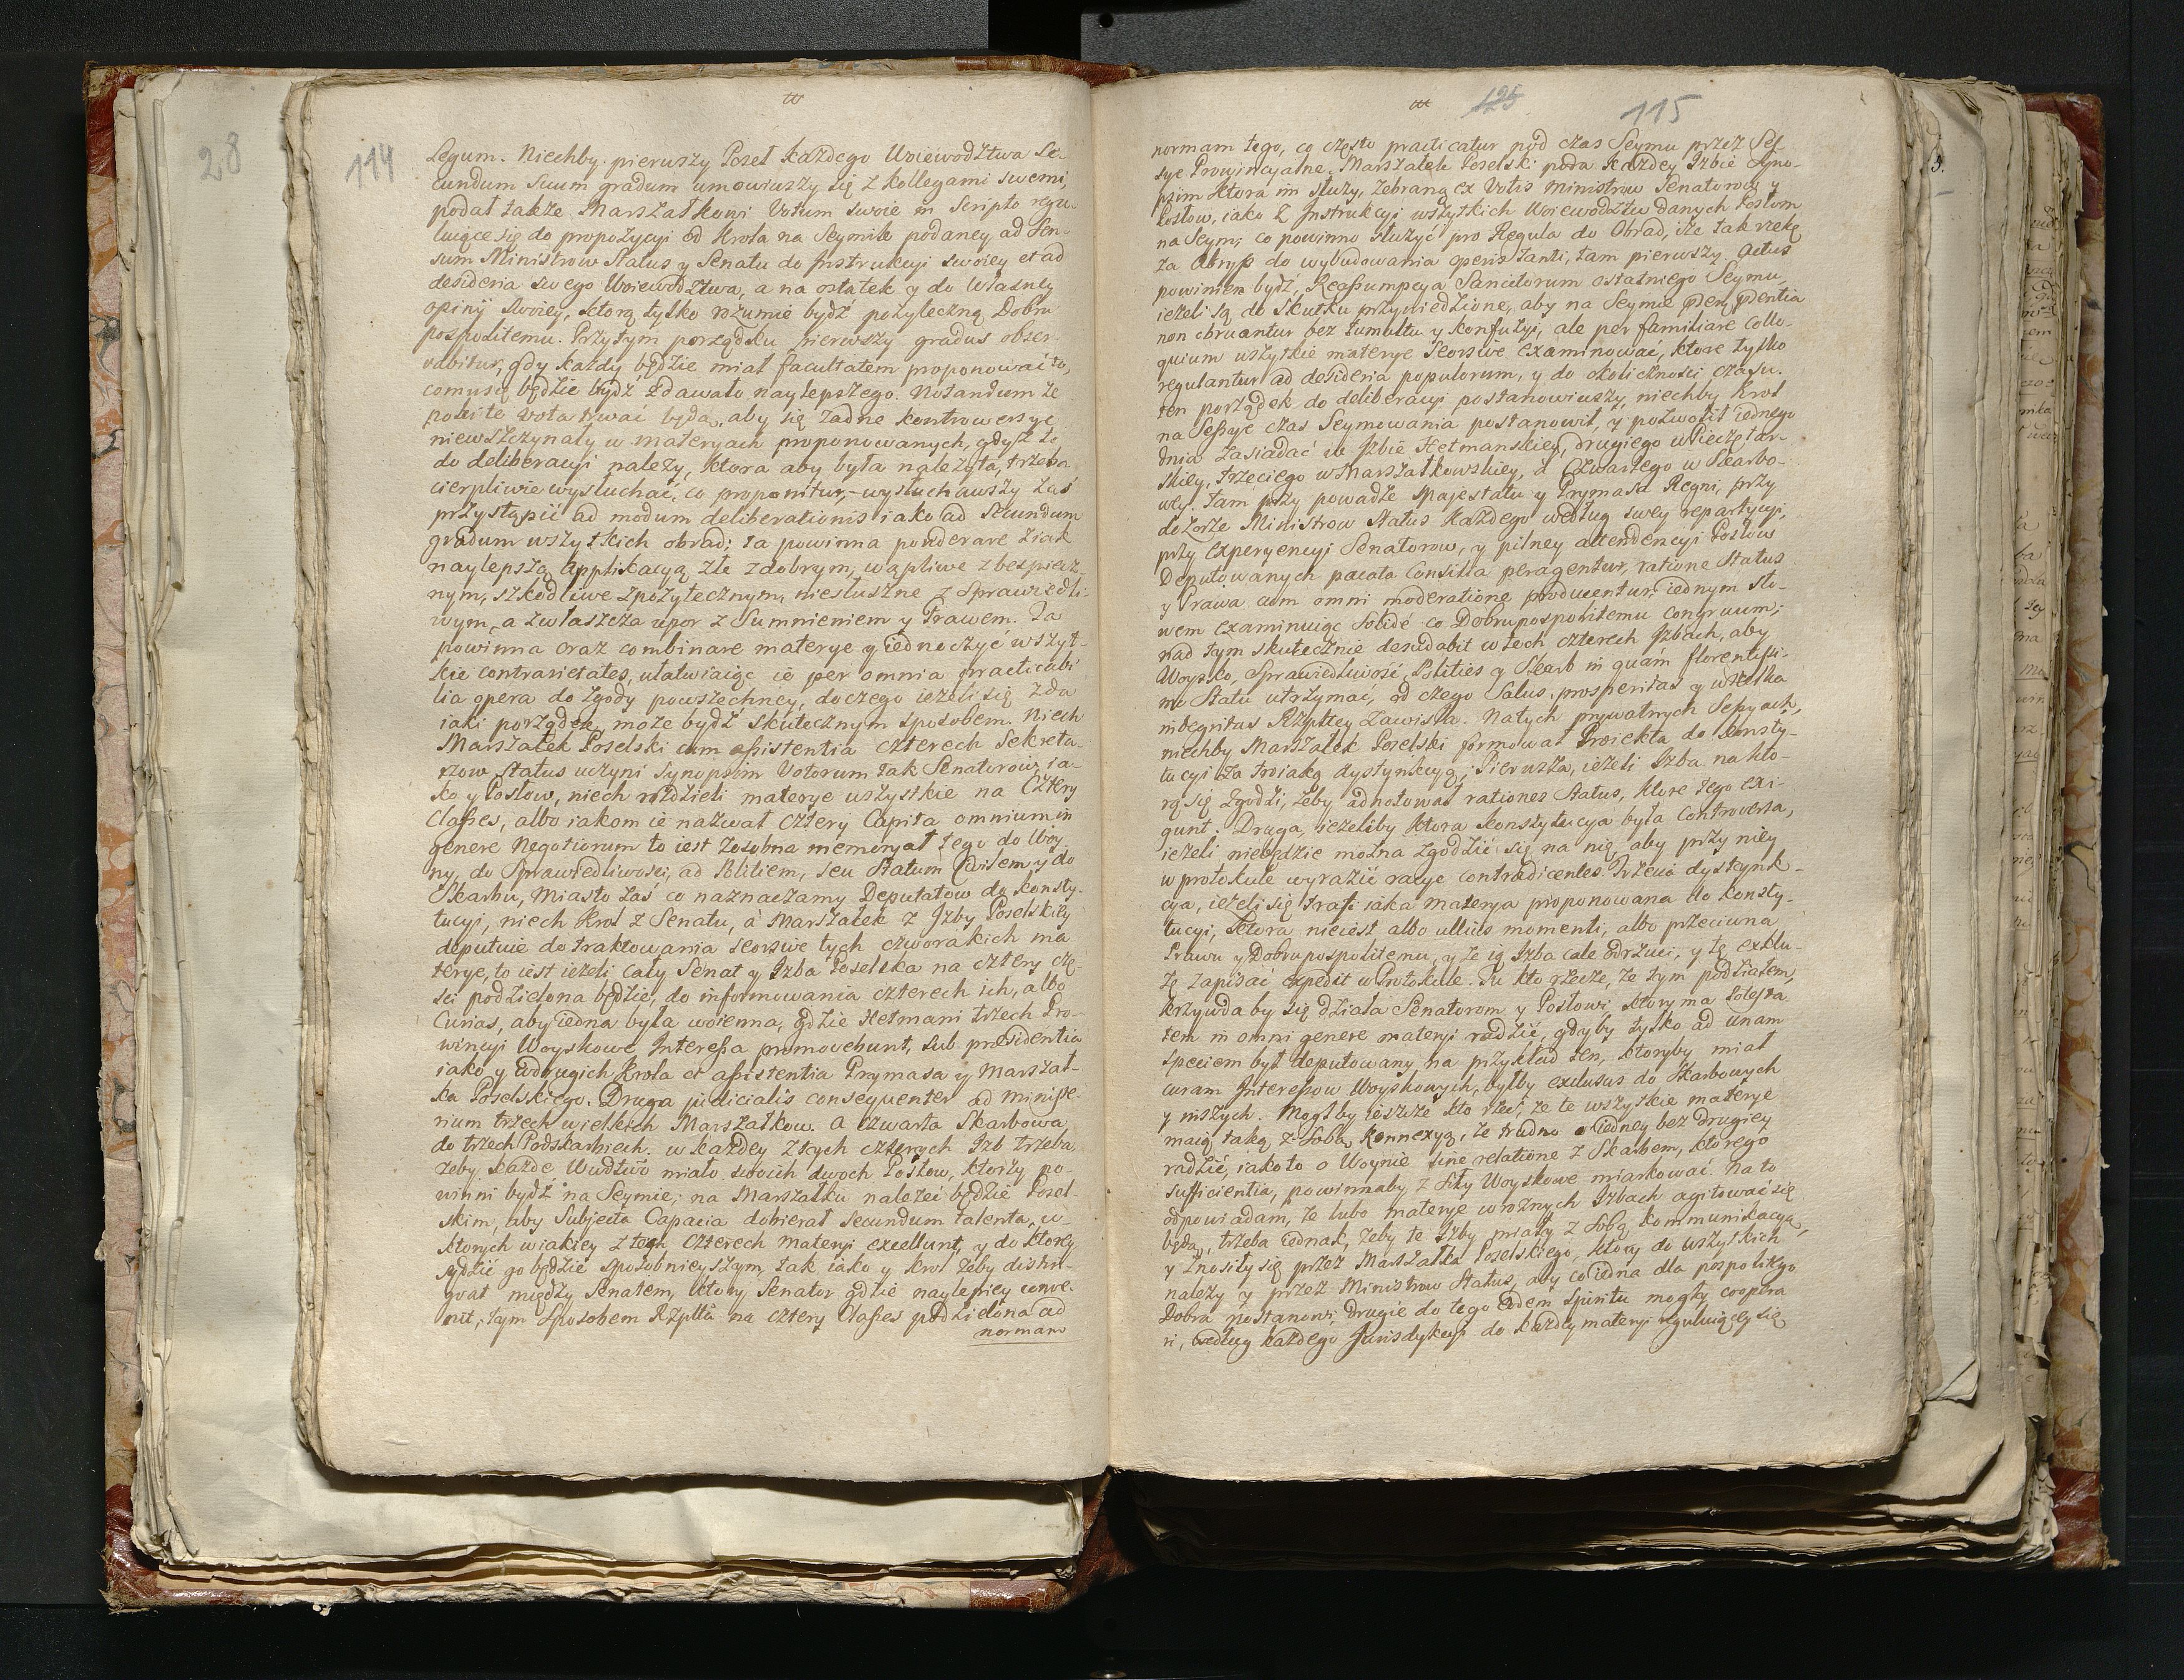 28
114
Legum. Niechby pierwszy Poseł każdego Woiewodztwa Se-
cundum suum gradum umowiwszy się z kollegami swemi,
podał także Marszałkowi Votum swoie in Scripto regu-
luiące się do propozycyi od Krola na Seymik podaney ad Sen-
sum Ministrow Status y Senatu do Instrukcyi swoiey et ad
desideria swego Woiewodztwa, a na ostatek y do własney
opinij swoiey, ktorą tylko rozumie bydź pożyteczną Dobru
pospolitemu. Przytym porządku pierwszy gradus obser-
vabitur, gdy każdy będzie miał facultatem proponować to,
co mu się będzie bydź zdawało naylepszego. Notandum że
poki te vota trwać będą, aby się żadne kontrowersye
niewszczynały w materyach proponowanych, gdyż to
do deliberacyi należy, ktora aby była należyta, trzeba
cierpliwie wysłuchać, co proponitur, wysłuchawszy zaś
przystąpić ad modum deliberationis iako ad Secundum
gradum wszytkich obrad; ta powinna ponderare ziak
naylepszą applikacyą złe z dobrym, wąpliwe z bespiecz-
nym, szkodliwe z pożytecznym, niesłuszne z Sprawiedli-
wym, a zwłaszcza upor z Sumnieniem y Prawem. Ta
powinna oraz combinare materye y iednoczyć wszyt-
kie contrarietates, ułatwiaiąc ie per omnia practicabi-
lia opera do zgody powszechney, do czego ieżeli się zda
iaki porządek, może bydź skutecznym sposobem. Niech
Marszałek Poselski cum assistentia czterech Sekreta-
rzow Status uczyni Synopsim Votorum tak Senatorow, ia-
ko y Posłow, niech rozdzieli materye wszystkie na Cztery
Classes, albo iakom ie nazwał cztery Capita omnium in
genere Negotiorum to iest zosobna memoryał tego do Woy-
ny, do Sprawiedliwości, ad Politiem, seu Statum Civilem y do
Skarbu, Miasto zaś co naznaczamy Deputatow do Konsty-
tucyi, niech Krol z Senatu, a Marszałek z Izby Poselskiey
deputuie do traktowania seorsive tych czworakich ma
terye, to iest ieżeli cały Senat y Izba Poselska na cztery czę-
ści podzielona będzie, do informowania czterech ich, albo
Curias, aby iedna była woienna, gdzie Hetmani trzech Pro-
wincyi Woyskowe Interessa promovebunt, sub præsidentia
iako y w drugich Krola et assistentia Prymasa y Marszał-
ka Poselskiego. Druga judicialis consequenter ad Ministe-
rium trzech wielkich Marszałkow. A czwarta Skarbowa,
do trzech Podskarbich. w każdey z tych czterech Izb trzeba
żeby każde Wudztwo miało swoich dwoch Posłow, ktorzy po-
winni bydź na Seymie; na Marszałku należeć będzie Posel-
skim, aby Subjecta Capacia dobierał secundum talenta, w
ktorych w iakiey z tych czterech materyi excellunt, y do ktorey
sądzić go będzie sposobnieyszym, tak iako y Krol żeby distin-
gwał między Senatem, ktory Senator gdzie naylepiey conve-
nit; tym sposobem Rzpltā na cztery Classes podzielona ad
normam
125
115
normam tego, co często practicatur pod czas Seymu przez Ses-
sye Prowincyalne. Marszałek Poselski poda każdey Izbie Syno-
psim ktora im służy, zebraną ex Votis Ministrow Senatorow y
Posłow, iako z Instrukcyi wszytkich Woiewodztw danych Posłom
na Seym; co powinno służyć pro Regula do Obrad, iże tak rzekę
za Abryss do wybudowania operis tanti, tam pierwszy actus
powinien bydź, Reassumpcya Sancitorum ostatniego Seymu,
ieżeli są do skutku przywiedzione, aby na Seymie pendentia
non obruantur bez tumultu y konfuzyi, ale per familiare Collo-
quium wszytkie materye seorsive examinować, ktore tylko
regulantur ad desideria populorum, y do okoliczności czasu.
ten porządek do deliberacyi postanowiwszy, niechby Krol
na Sessye czas Seymowania postanowił, y pozwolił iednego
dnia zasiadać w Izbie Hetmanskiey, drugiego w Pieczętar-
skiey, trzeciego w Marszałkowskiey, a czwartego w Skarbo-
wey. Tam przy powadze Majestatu y Prymasa Regni, przy
dozorze Ministrow Status każdego według swey repartycyi,
przy Experyencyi Senatorow, y pilney attendencyi Posłow
Deputowanych pacata Consilia peragentur, ratione Status
y Prawa cum omni moderatione producentur, iednym sło-
wem examinuiąc solidé co Dobrupospolitemu congruum;
nad tym skutecznie desudabit w tech czterech Izbach, aby
Woysko, Sprawiedliwość, Polities y Skarb in quam florentissi-
mo Statu utrzymać, od czego Salus, prosperitas y wszelka
integritas Rzpltey zawisła. Natych prywatnych Sessyach,
niechby Marszałek Poselski formował Proiekta do Konsty-
tucyi za troiaką dystynkcyą; Pierwsza, ieżeli Izba na kto-
rą się zgodzi, żeby adnotował rationes Status, ktore tego exi-
gunt. Druga, ieżeliby ktora Konstytucya była controversa,
ieżeli niebędzie można zgodzić się na nią, aby przy niey
w protokule wyrazić racye contradicentes. Trzecia dystynk-
cya, ieżeli się trafi iaka materya proponowana do Konsty-
tucyi, ktora nieiest albo ullius momenti, albo przeciwna
Prawu y Dobrupospolitemu, y że ią Izba cale odrzuci, y tę exklu-
zę zapisać expedit w Protokule. Tu kto rzecze, że tym podziałem,
krzywda by się działa Senatorom y Posłowi ktory ma Potesta-
tem in omni genere materyi radzić, gdyby tylko ad unam
speciem był deputowany, na przykład ten, ktoryby miał
curam Interessow Woyskowych, byłby exclusus do Skarbowych
y inszych. Mogłby ieszcze kto rzec, że te wszytkie materye
maią taką z sobą konnexyą, że trudno o iedney bez drugiey
radzić, iako to o Woynie sine relatione z Skarbem, ktorego
sufficientia, powinnaby z siły Woyskowe miarkować. Na to
odpowiadam, że lubo materye w rożnych Izbach agitować się
będą, trzeba iednak, żeby te Izby miały z sobą kommunikacyą,
y znosiły się przez Marszałka Poselskiego, ktory do wszytkich
należy y przez Ministrow Status, aby co iedna dla pospolitego
Dobra postanowi, drugie do tego eodem spiritu mogły coopera
ri, według każdego Jurisdykcyi do każdey materyi reguluiącey się